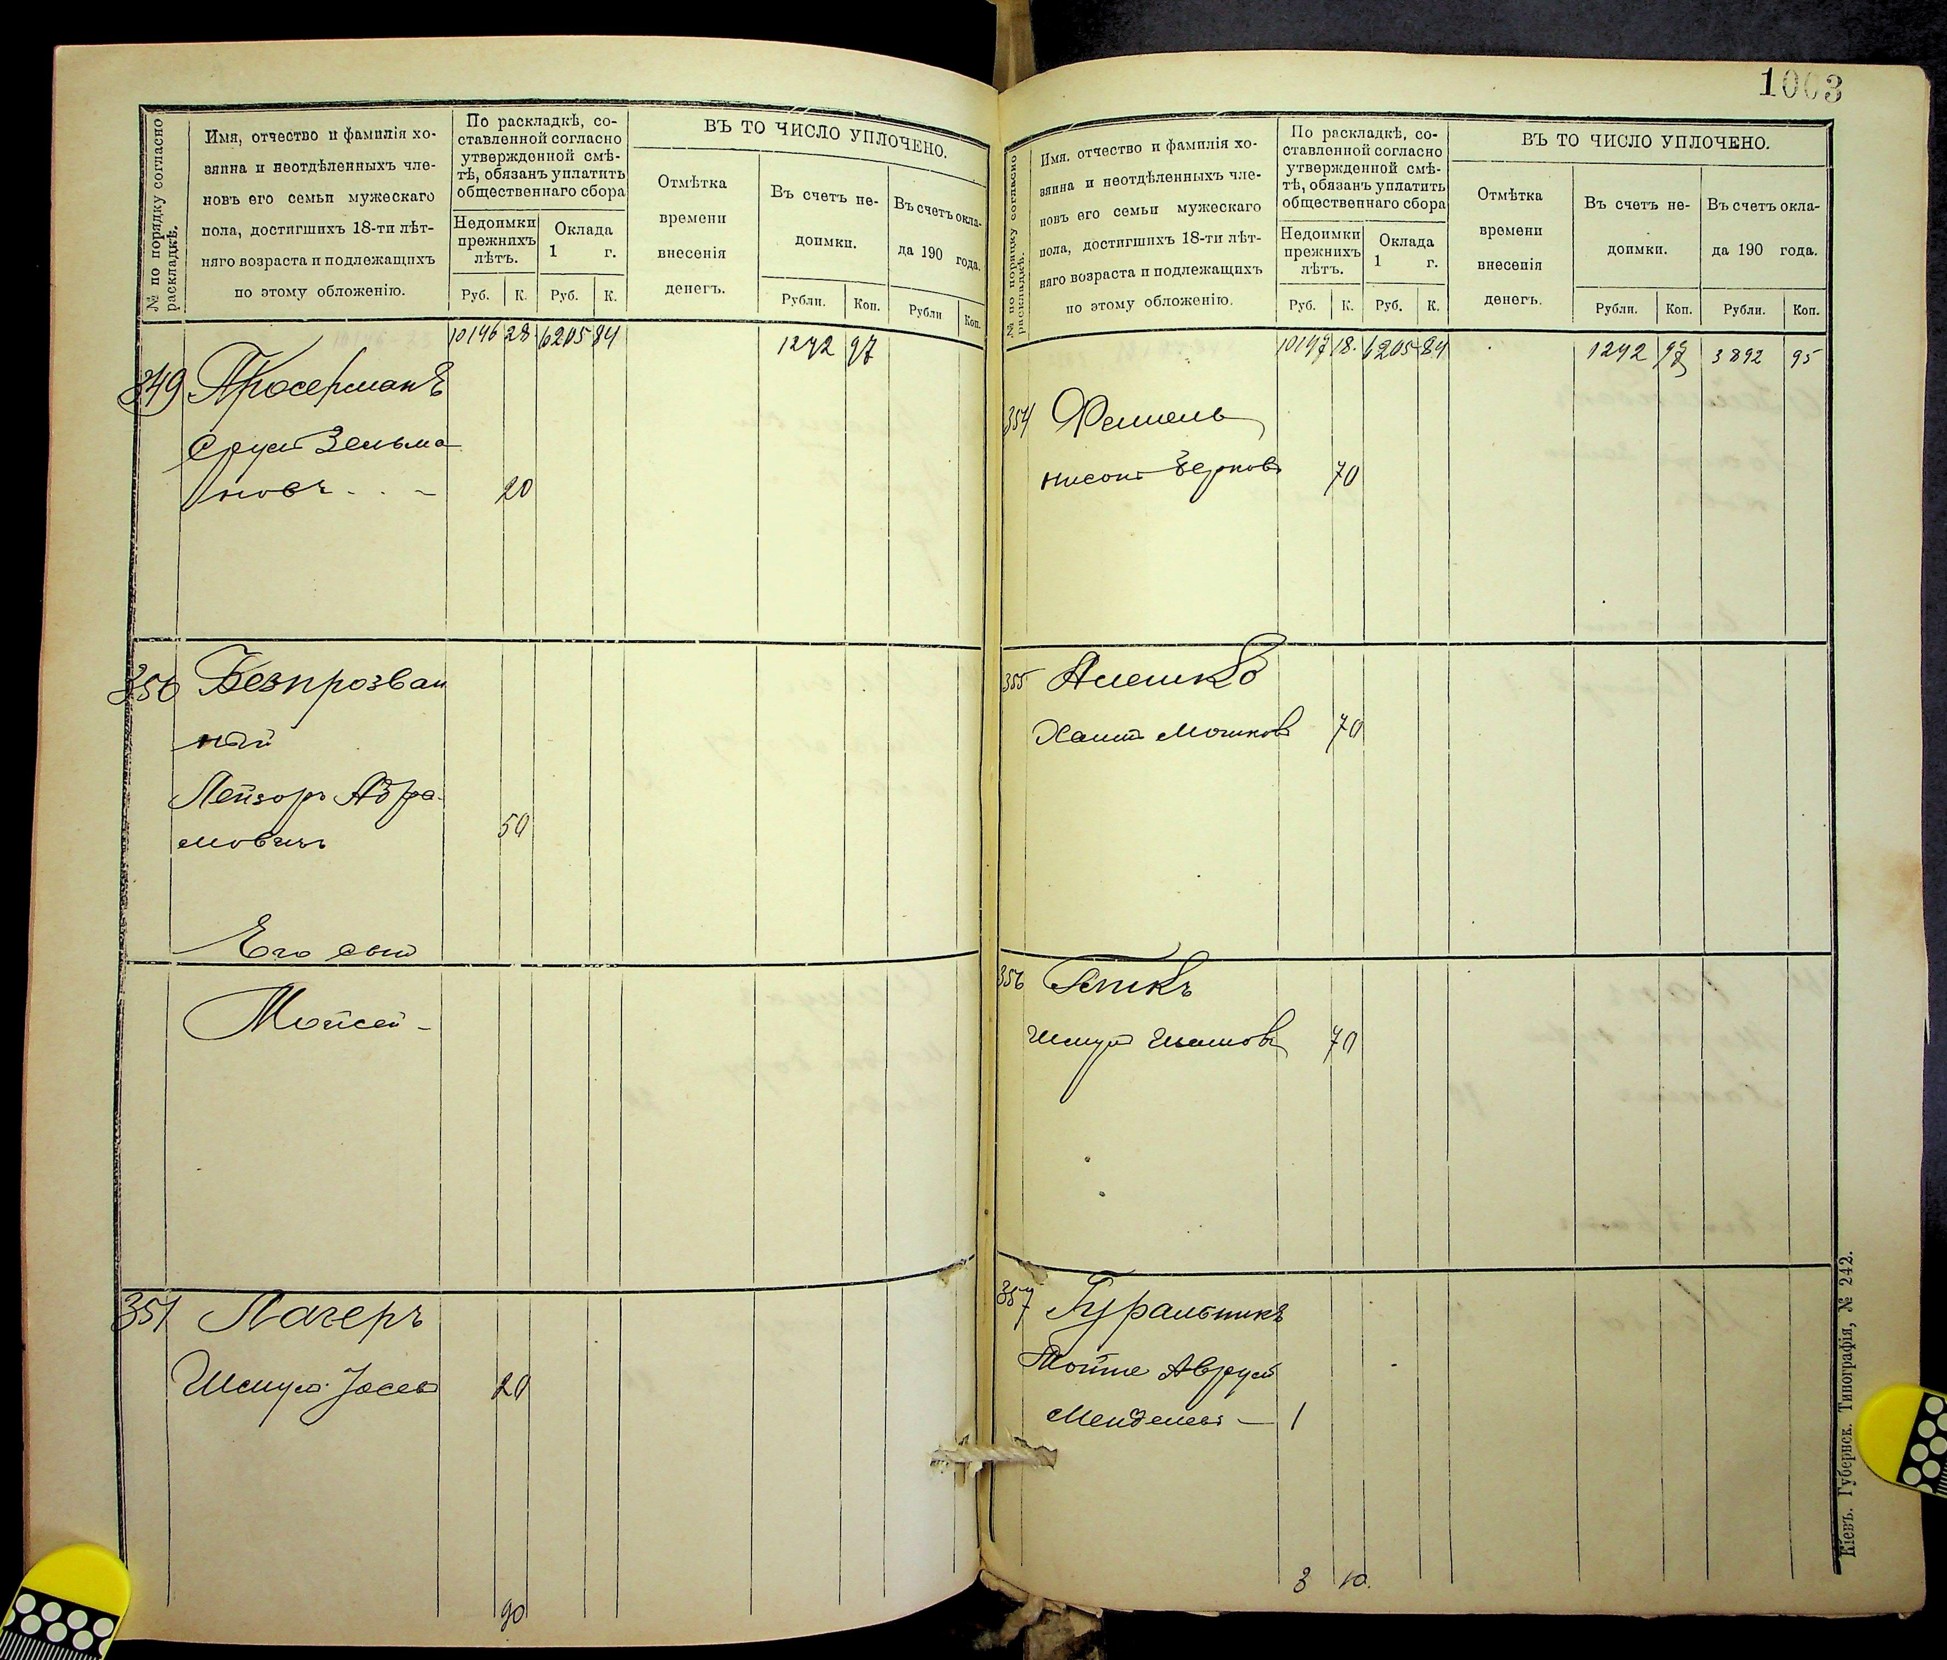 1003
№ по порядку согласно
раскладкѣ.
Имя, отчество и фамилія хо-
зяина и неотдѣленныхъ чле-
новъ его семьи мужескаго
пола, достигшихъ 18-ти лѣт-
няго возраста и подлежащихъ
по этому обложенію.
По раскладкѣ, со-
ставленной согласно
утвержденной смѣ-
тѣ, обязанъ уплатить
общественнаго сбора
Недоимки
прежнихъ
лѣтъ.
Оклада
1 г.
Руб. К. Руб. К.
ВЪ ТО ЧИСЛО УПЛОЧЕНО.
Отмѣтка
времени
внесенія
денегъ.
Въ счетъ не-
доимки.
Рубли. Коп.
Въ счетъ окла-
да 190 года.
Рубли Коп.
10146 28 6205 84 1242 97
349
Сруль Зельма
новъ 20
350 Безпрозван
ный
Лейзоръ Абра
мовичъ 50
Его сын
Мойсей
351 Лагеръ
Шмуль Іосев 20
90
№ по порядку согласно
раскладкѣ.
Имя, отчество и фамилія хо-
зяина и неотдѣленныхъ чле-
новъ его семьи мужескаго
пола, достигшихъ 18-ти лѣт-
няго возраста и подлежащихъ
по этому обложенію.
По раскладкѣ, со-
ставленной согласно
утвержденной смѣ-
тѣ, обязанъ уплатить
общественнаго сбора
Недоимки
прежнихъ
лѣтъ.
Оклада
1 г.
Руб. К. Руб. К.
ВЪ ТО ЧИСЛО УПЛОЧЕНО.
Отмѣтка
времени
внесенія
денегъ.
Въ счетъ не-
доимки.
Рубли. Коп.
Въ счетъ окла-
да 190 года.
Рубли. Коп.
10147 18 6205 84 1242 97 3892 95
354 Фишель
Нисонъ Берковъ 70
355
Хаимъ Мошковъ 70
356
Шмуль 70
357 Гуральникъ
Аврум
Менделевъ — 1
3 10
Кіевъ. Губернск. Типографія, № 242.